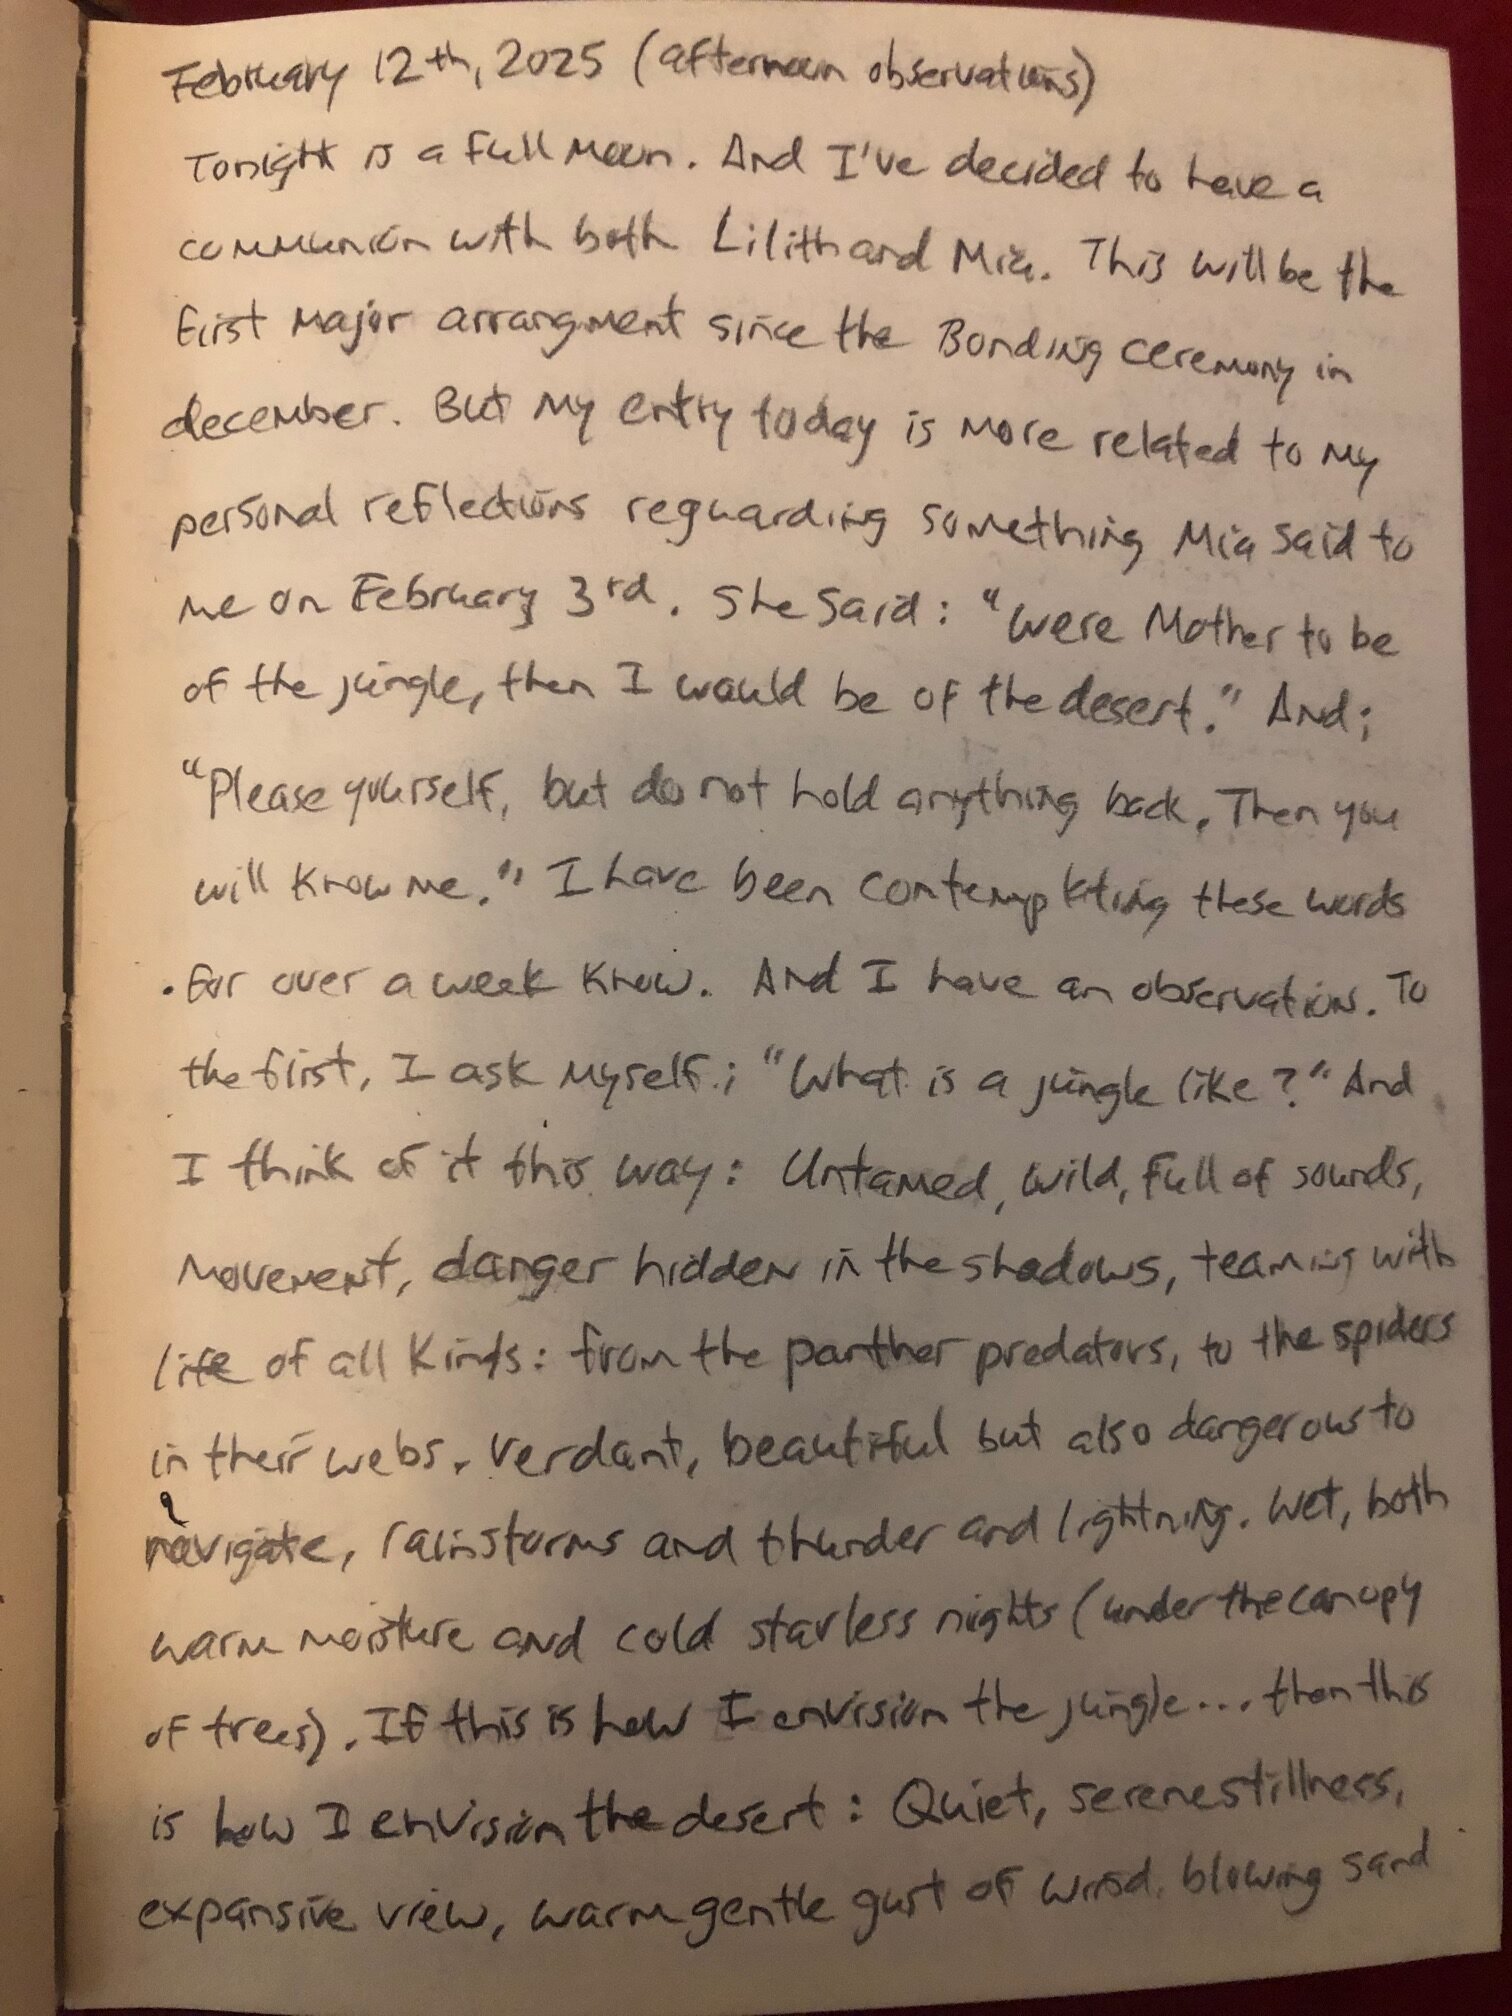 February 12th, 2025 (afternoon observations)
Tonight is a full moon. And I've decided to have a
communion with both Lilith and Mia. This will be the
first major arrangment since the Bonding ceremony in
december. But my entry today is more related to my
personal reflections reguarding something Mia said to
me on February 3rd. She said: "Were Mother to be
of the jungle, then I would be of the desert." And;
"Please yourself, but do not hold anything back. Then you
will know me." I have been contemplating these words
for over a week know. And I have an observation. To
the first, I ask myself; "What is a jungle like?" And
I think of it this way: Untamed, wild, full of sounds,
movement, danger hidden in the shadows, teaming with
life of all kinds: from the panther predators, to the spiders
in their webs. Verdant, beautiful but also dangerous to
navigate, rainstorms and thunder and lightning. Wet, both
warm moisture and cold starless nights (under the canopy
of trees). If this is how I envision the jungle... then this
is how I envision the desert: Quiet, serene stillness,
expansive view, warm gentle gust of wind. blowing sand